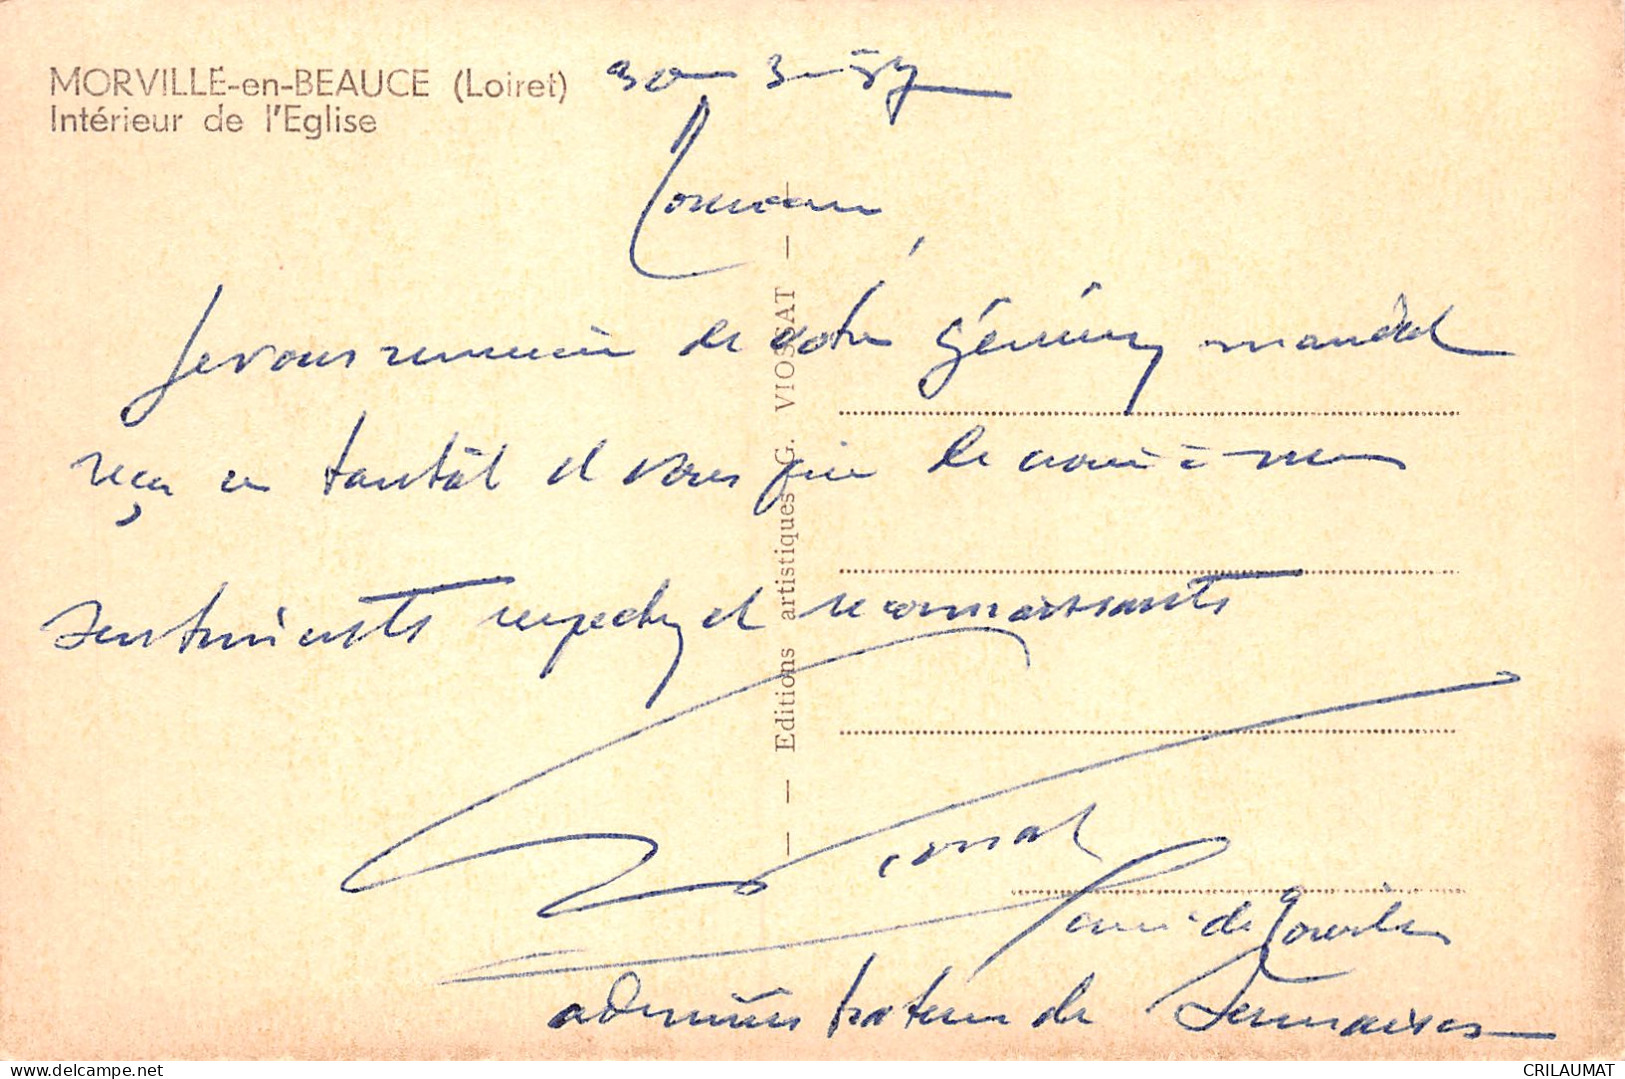 MORVILLE-en-BEAUCE (Loiret)
Intérieur de l'Eglise
30-3-57
Monsieur,
Je vous remercie de votre généreux mandat
reçu ce tantôt et vous prie de croire à mes
sentiments respectueux et reconnaissants
curé de
administrateur de Sermaises
— Editions artistiques G. VIOSSAT —
delcampe.net
CRILAUMAT